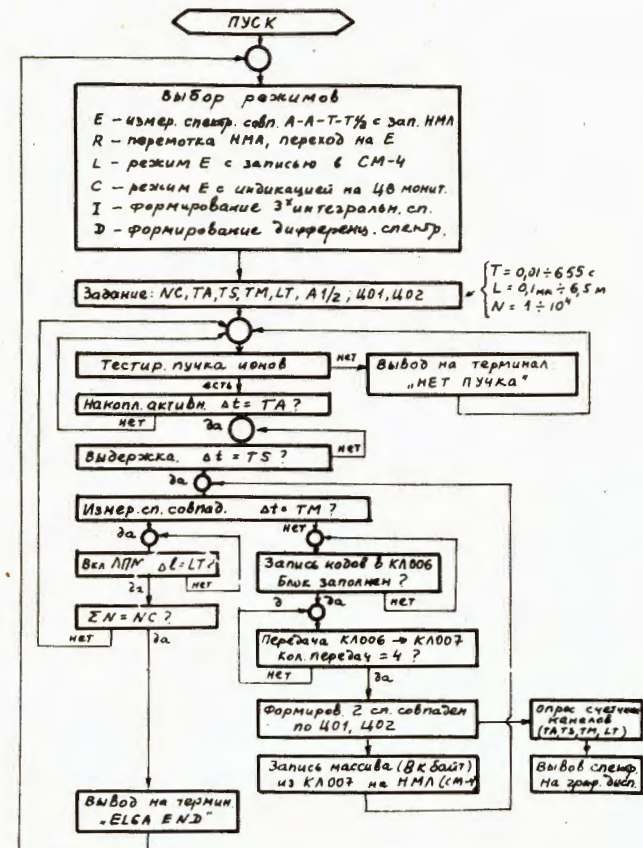 ПУСК
Выбор режимов
E – измер. спектр. совп. А-А-Т-Т½ с зап. НМЛ
R – перемотка НМЛ, переход на E
L – режим E с записью в СМ-4
C – режим E с индикацией на ЦВ монит.
I – формирование 3х интегральн. сп.
D – формирование дифференц. спектр.
Задание: NC, TA, TS, TM, LT, A1/2; ЦО1, ЦО2
T = 0,01÷655 с
L = 0,1мм÷6,5 м
N = 1÷10⁴
Тестир. пучка ионов
нет
Вывод на терминал
„НЕТ ПУЧКА"
есть
Накопл. активн. Δt = TA ?
нет
да
Выдержка. Δt = TS ?
нет
да
Измер. сп. совпад. Δt = TM ?
да
нет
Вкл ЛПМ Δℓ=LT?
нет
да
Запись кодов в КЛ006
Блок заполнен ?
нет
да
ΣN = NC ?
нет
да
Передача КЛ006 → КЛ007
Кол. передач = 4 ?
нет
да
Формиров. 2 сп. совпаден
по ЦО1, ЦО2
Опрос счетчик.
каналов
(TA, TS, TM, LT)
Запись массива (8 к байт)
из КЛ007 на НМЛ (СМ-4)
Вывов спектр
на граф. дисп.
Вывод на термин.
„ELGA END"